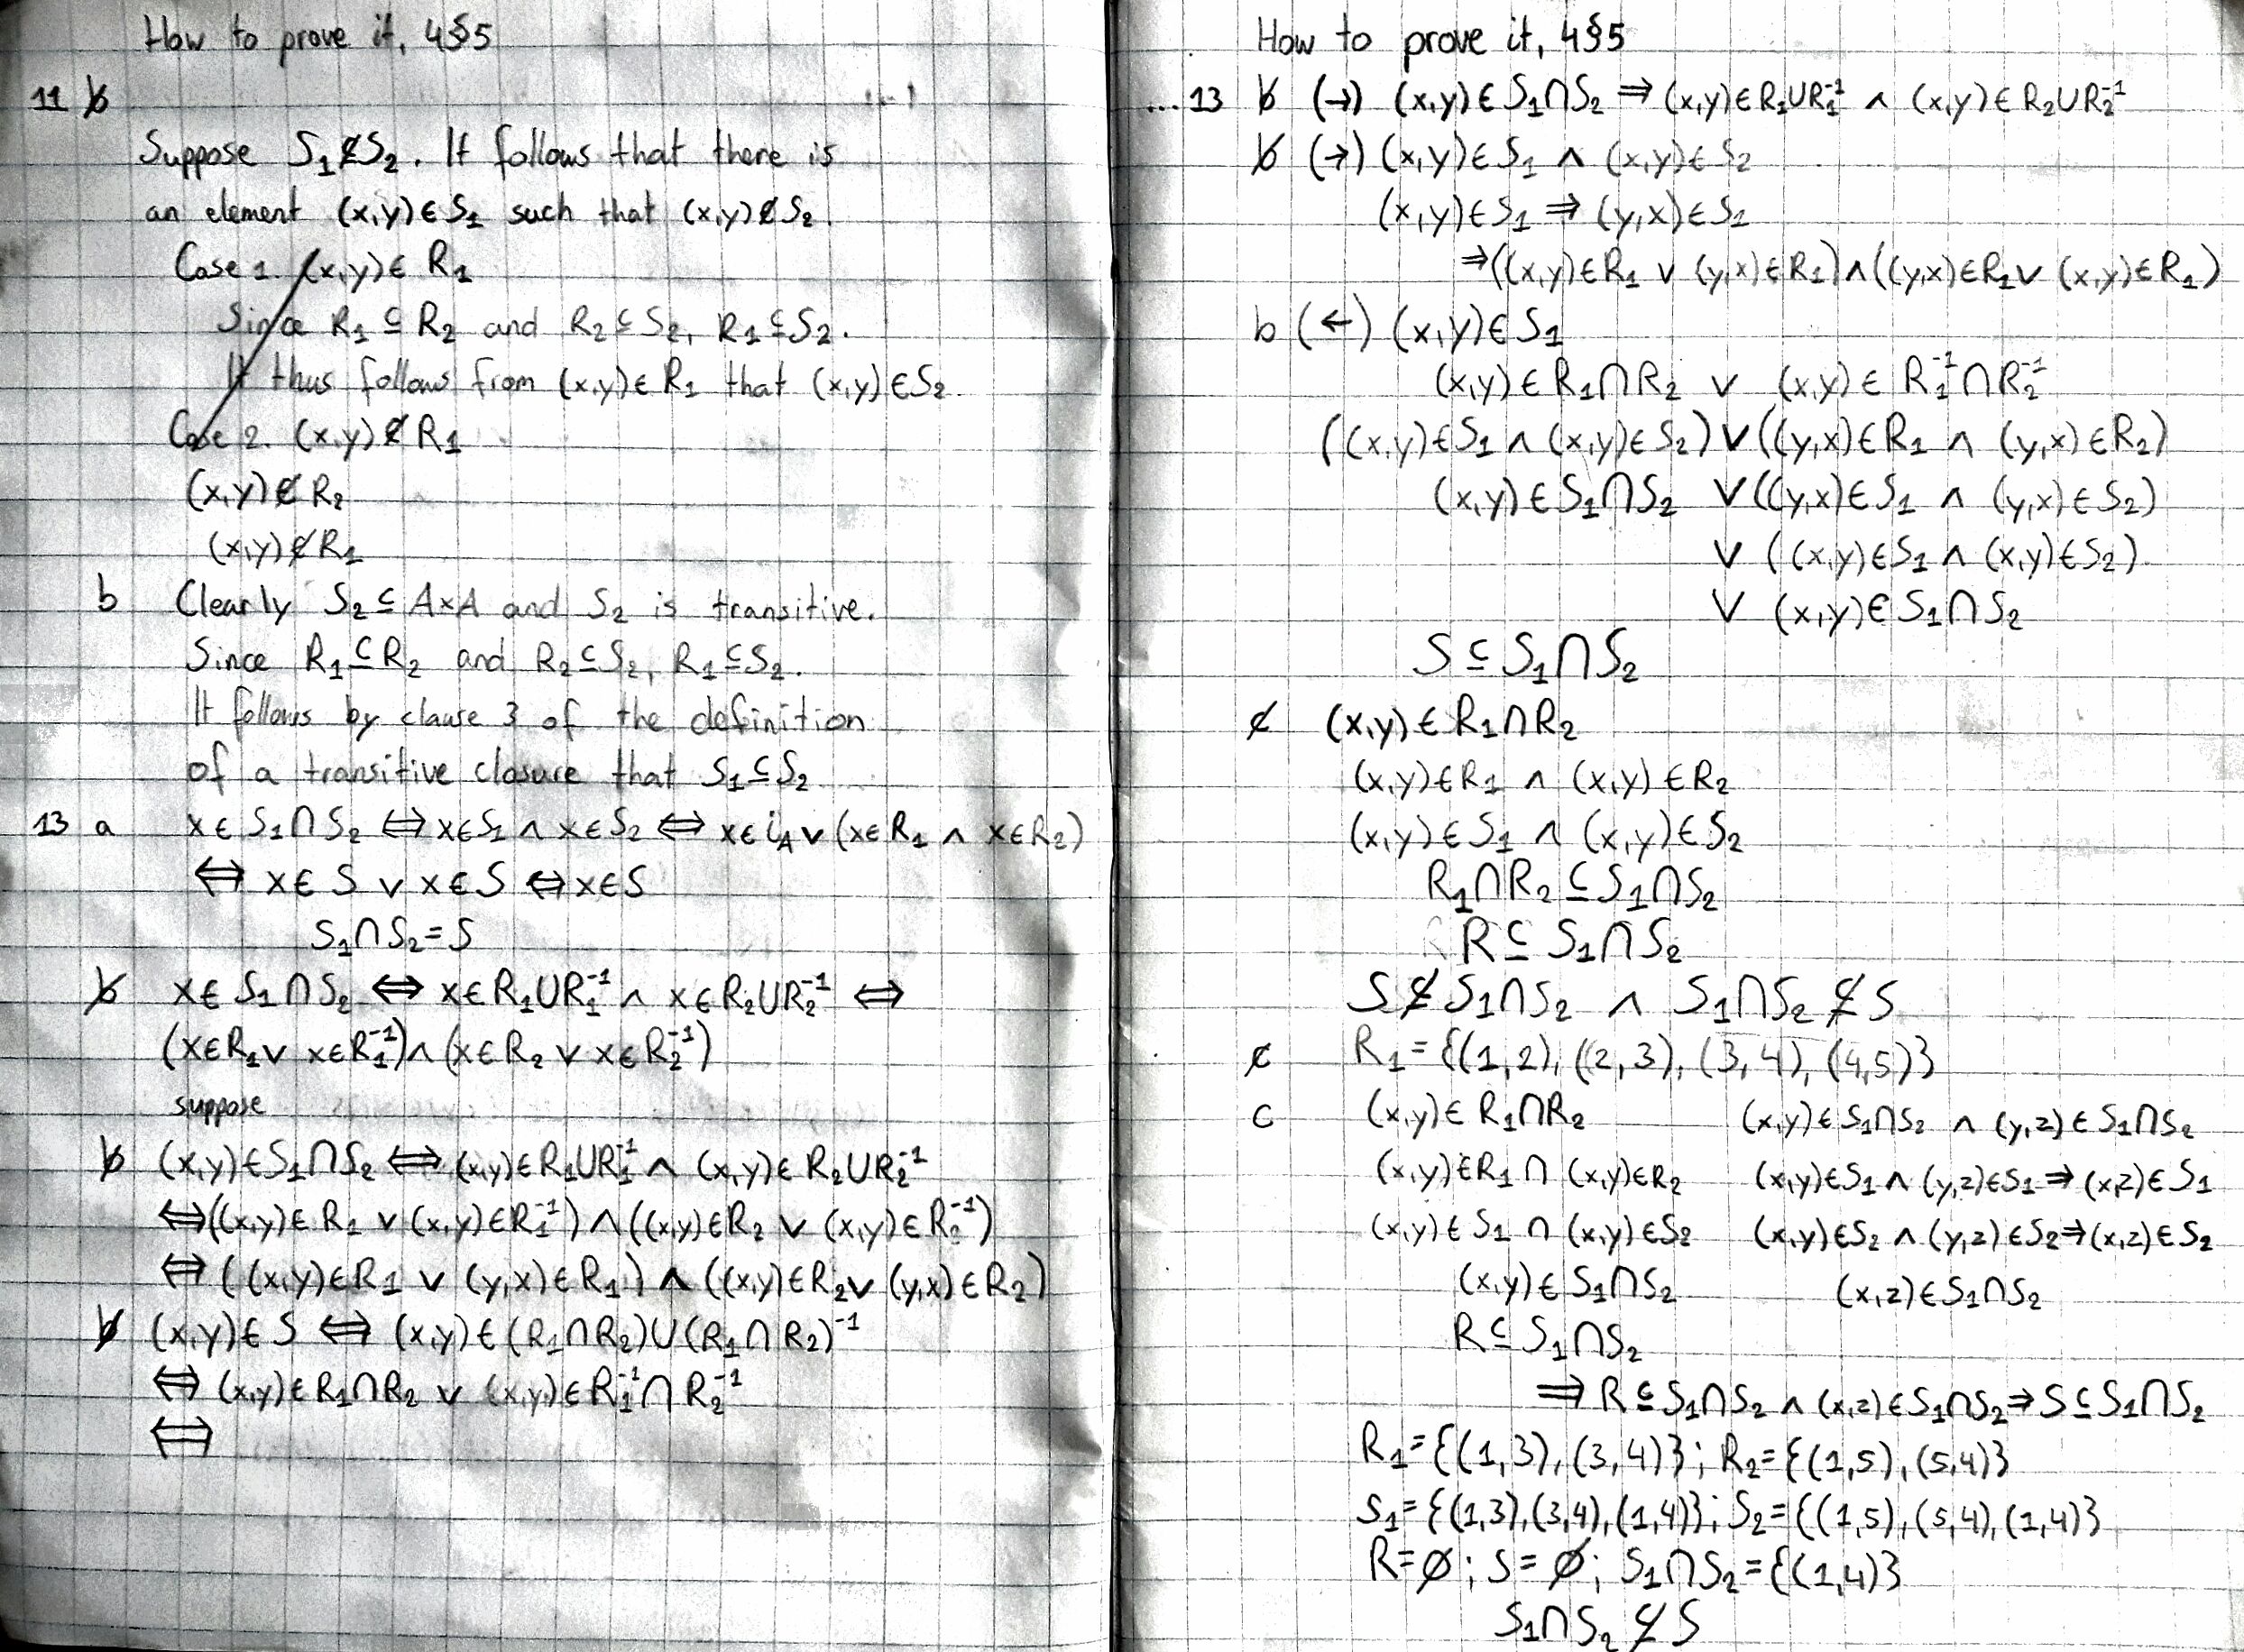 How to prove it, 4§5
11 b
Suppose S₁⊈S₂. It follows that there is
an element (x,y)∈S₁ such that (x,y)∉S₂.
Case 1. (x,y)∈ R₁
Since R₁⊆R₂ and R₂⊆S₂, R₁⊆S₂.
It thus follows from (x,y)∈R₁ that (x,y)∈S₂.
Case 2. (x,y)∉R₁
(x,y)∉R₂
(x,y)∉R₁
b Clearly S₂⊆A×A and S₂ is transitive.
Since R₁⊆R₂ and R₂⊆S₂, R₁⊆S₂.
It follows by clause 3 of the definition
of a transitive closure that S₁⊆S₂
13 a x∈S₁∩S₂ ⇔ x∈S₁ ∧ x∈S₂ ⇔ x∈i_A ∨ (x∈R₁ ∧ x∈R₂)
⇔ x∈S ∨ x∈S ⇔ x∈S
S₁∩S₂=S
b x∈S₁∩S₂ ⇔ x∈R₁∪R₁⁻¹ ∧ x∈R₂∪R₂⁻¹ ⇔
(x∈R₁ ∨ x∈R₁⁻¹)∧(x∈R₂ ∨ x∈R₂⁻¹)
suppose
b (x,y)∈S₁∩S₂ ⇔ (x,y)∈R₁∪R₁⁻¹ ∧ (x,y)∈R₂∪R₂⁻¹
⇔((x,y)∈R₁ ∨ (x,y)∈R₁⁻¹)∧((x,y)∈R₂ ∨ (x,y)∈R₂⁻¹)
⇔((x,y)∈R₁ ∨ (y,x)∈R₁)∧((x,y)∈R₂ ∨ (y,x)∈R₂)
b (x,y)∈S ⇔ (x,y)∈(R₁∩R₂)∪(R₁∩R₂)⁻¹
⇔ (x,y)∈R₁∩R₂ ∨ (x,y)∈R₁⁻¹∩R₂⁻¹
⇔
How to prove it, 4§5
...13 b (→) (x,y)∈S₁∩S₂ ⇒ (x,y)∈R₁∪R₁⁻¹ ∧ (x,y)∈R₂∪R₂⁻¹
b (→) (x,y)∈S₁ ∧ (x,y)∈S₂
(x,y)∈S₁ ⇒ (y,x)∈S₁
⇒((x,y)∈R₁ ∨ (y,x)∈R₁)∧((y,x)∈R₁ ∨ (x,y)∈R₁)
b (←) (x,y)∈S₁
(x,y)∈R₁∩R₂ ∨ (x,y)∈R₁⁻¹∩R₂⁻¹
((x,y)∈S₁ ∧ (x,y)∈S₂)∨((y,x)∈R₁ ∧ (y,x)∈R₂)
(x,y)∈S₁∩S₂ ∨((y,x)∈S₁ ∧ (y,x)∈S₂)
∨ ((x,y)∈S₁ ∧ (x,y)∈S₂)
∨ (x,y)∈S₁∩S₂
S⊆S₁∩S₂
c (x,y)∈R₁∩R₂
(x,y)∈R₁ ∧ (x,y)∈R₂
(x,y)∈S₁ ∧ (x,y)∈S₂
R₁∩R₂⊆S₁∩S₂
R⊆S₁∩S₂
S⊈S₁∩S₂ ∧ S₁∩S₂⊈S
c R₁={(1,2), (2,3), (3,4), (4,5)}
c (x,y)∈R₁∩R₂ (x,y)∈S₁∩S₂ ∧ (y,z)∈S₁∩S₂
(x,y)∈R₁ ∩ (x,y)∈R₂ (x,y)∈S₁ ∧ (y,z)∈S₁⇒(x,z)∈S₁
(x,y)∈S₁ ∩ (x,y)∈S₂ (x,y)∈S₂ ∧ (y,z)∈S₂⇒(x,z)∈S₂
(x,y)∈S₁∩S₂ (x,z)∈S₁∩S₂
R⊆S₁∩S₂
⇒R⊆S₁∩S₂ ∧ (x,z)∈S₁∩S₂⇒S⊆S₁∩S₂
R₁={(1,3),(3,4)}; R₂={(1,5),(5,4)}
S₁={(1,3),(3,4),(1,4)}; S₂={(1,5),(5,4),(1,4)}
R=∅; S=∅; S₁∩S₂={(1,4)}
S₁∩S₂⊈S